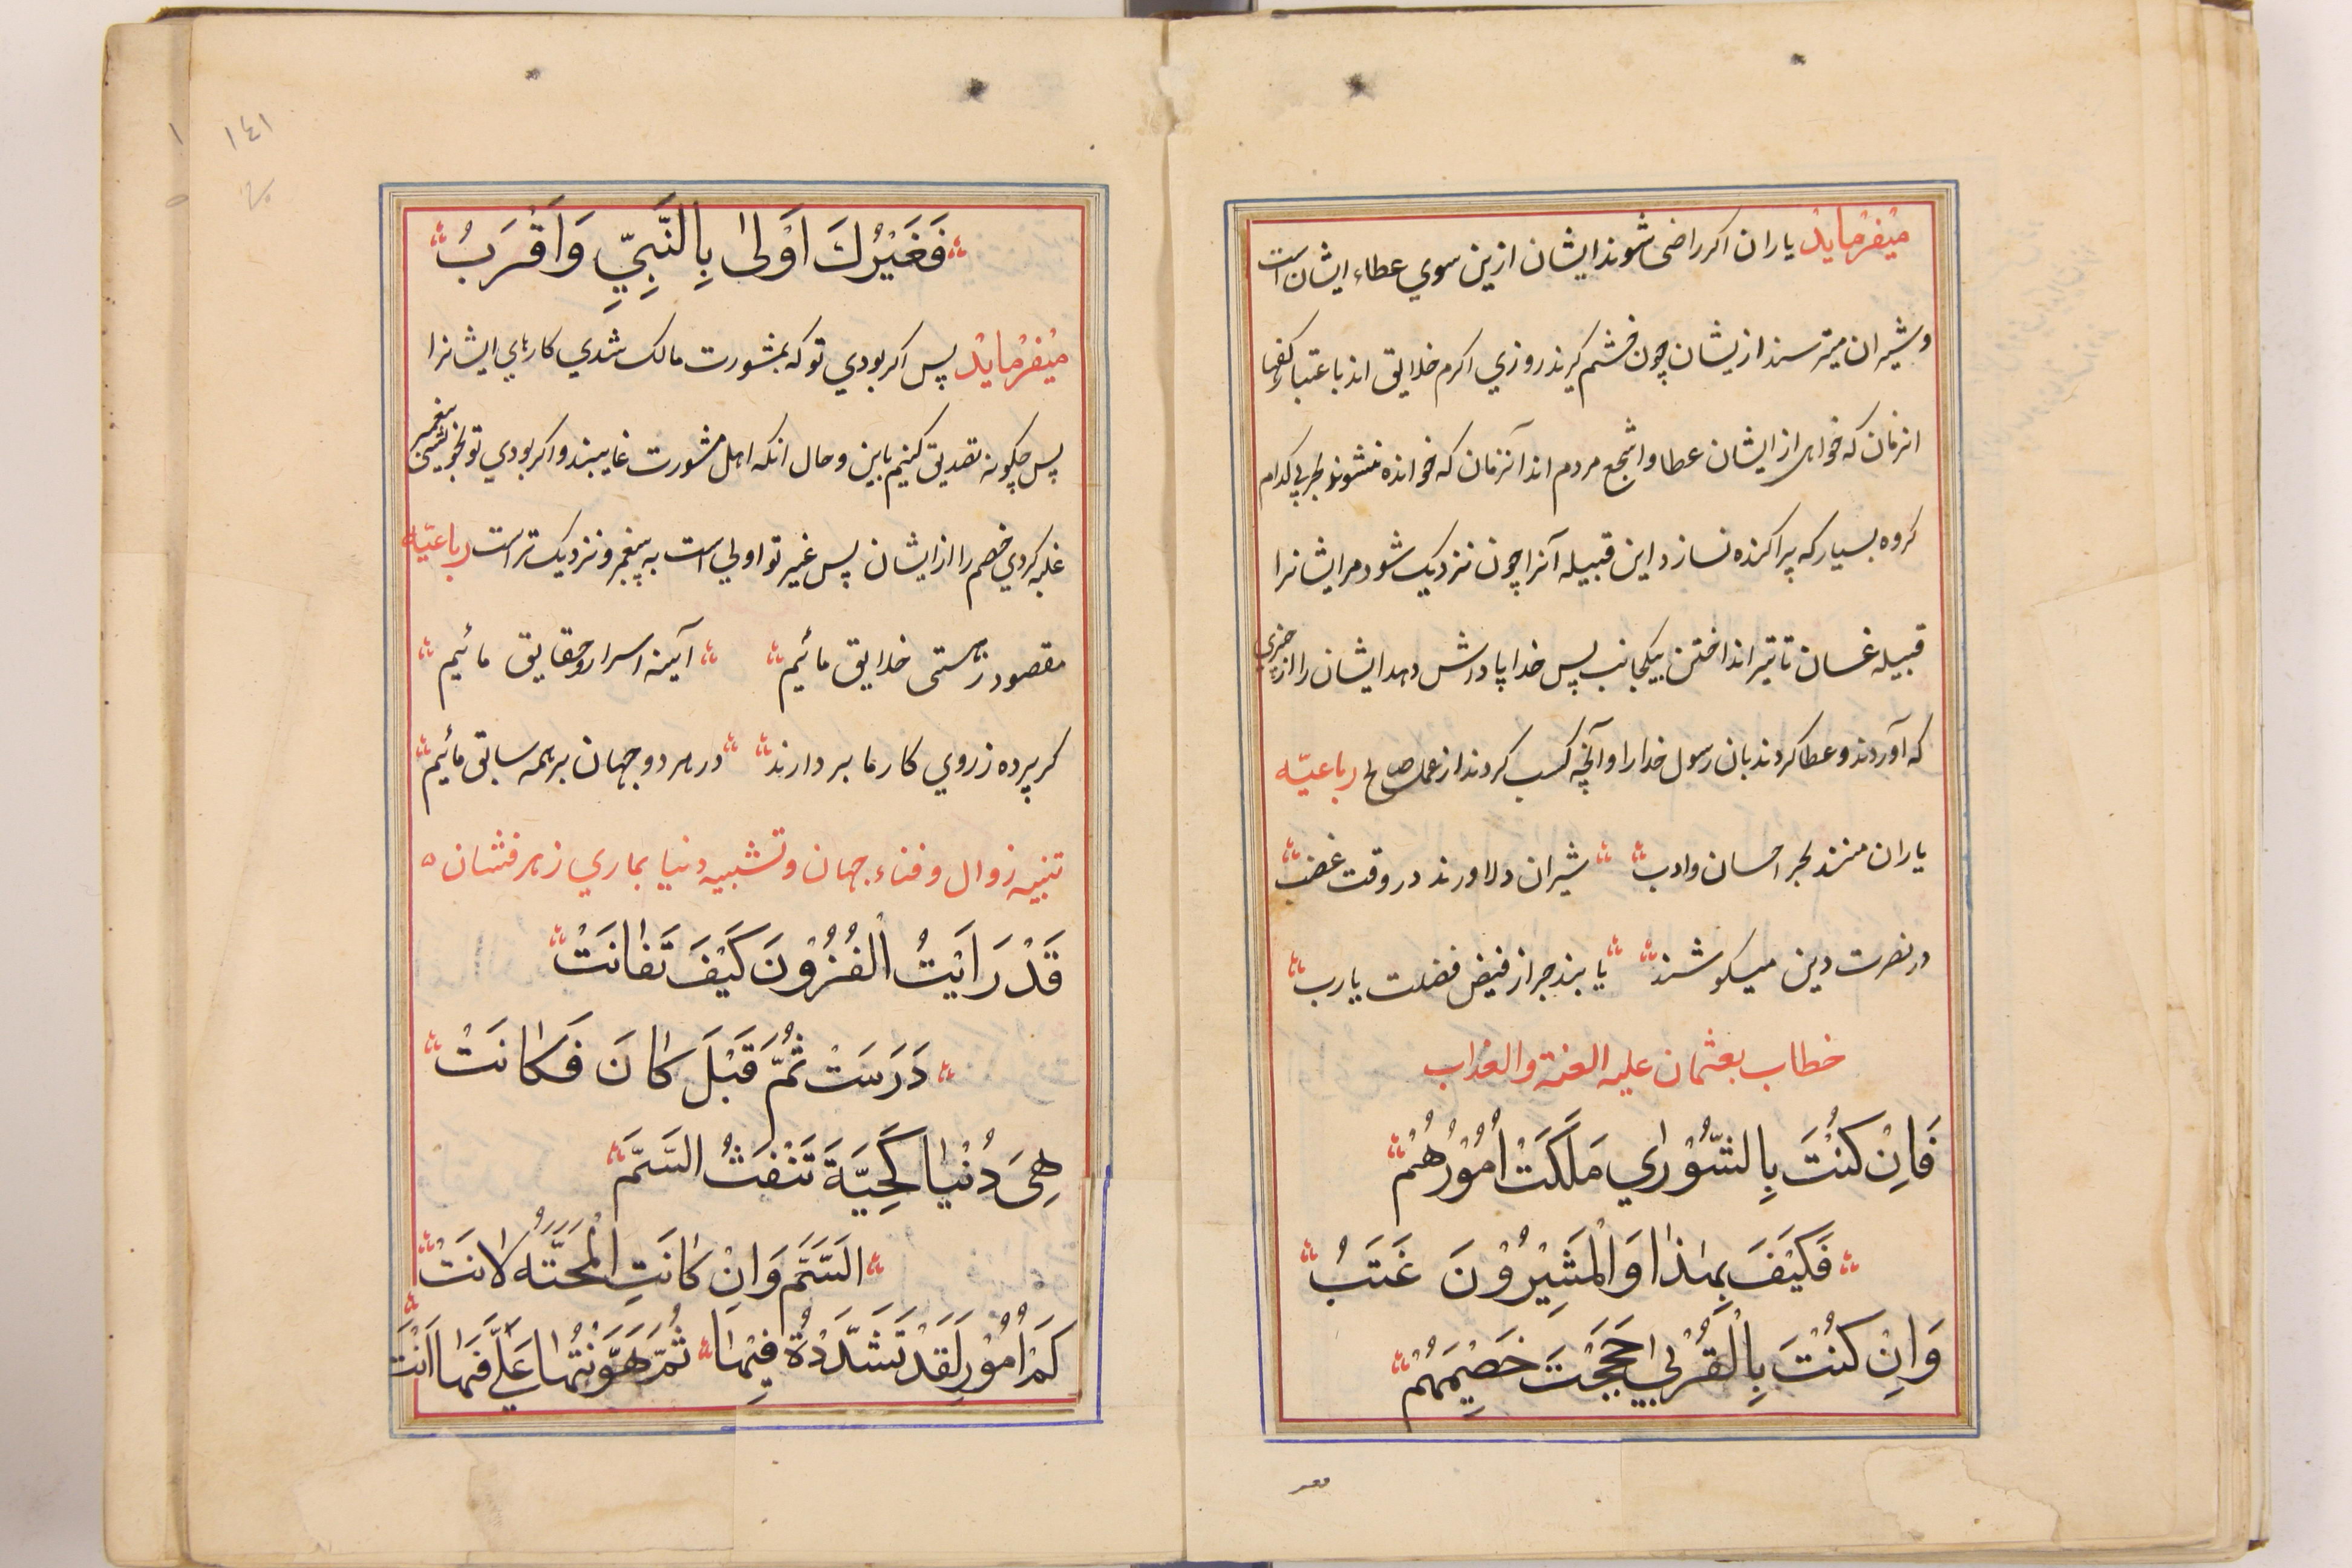 میفرماید یاران اکر راضی شوند ایشان ازین سوي عطاء ایشان است
وشیران میترسند ازیشان چون خشم کیرند روزي اکرم خلایق اند باعتبار کفها
انزمان که خواهی از ایشان عطا واشجع مردم اند آنزمان که خوانده میشوند بحربي کدام
کروه بسیار که پراکنده نسازد این قبیله آنرا چون نزدیک شود مر ایشانرا
قبیله غسان تا تیر انداختن بیکجانب پس خدا پاداش دهد ایشان را از چیزي
که آوردند وعطا کردند بان رسول خدا را وآنچه کسب کردند از عمل صالح رباعیّه
یاران منند احسان وادب شیران دلاورند در وقت غضب
در نصرت دین میکوشند یا بند از فیض فضلت یا رب
خطاب بعثمان علیه العنة والعذاب
فَاِنْ كُنْتَ بِالشُّوْرٰي مَلَكْتَ اُمُوْرَهُمْ
فَكَيْفَ بِهٰذٰا وَالْمُشِيْرُوْنَ غَيَبُ
وَاِنْ كُنْتَ بِالْقُرْبٰي حَجَجْتَ خَصِيْمَهُمْ
فَغَيْرُكَ اَوْلىٰ بِالنَّبِيِّ وَاَقْرَبُ
میفرماید پس اکر بودي تو که بمشورت مالک شدي کارهاي ایشانرا
پس چکونه تصدیق کنیم باین وحال انکه اهل مشورت غایبند واکر بودي تو بخویشي پیغمبر
غلبه کردي خصم را از ایشان پس غیر تو اولي است به پیغمبر ونزدیک تر است رباعیّه
مقصود زهستی خلایق مائیم آیینه اسرار وحقایق مائیم
کر پرده ز روي کار ما بردارند در هر دو جهان بر همه سابق مائیم
تنبیه زوال وفناء جهان وتشبیه دنیا بماري زهر فشان ٥
قَدْ رَاَيْتُ الْقُرُوْنَ كَيْفَ تَفٰانَتْ
دَرَسَتْ ثُمَّ قَبْلَ كٰانَ فَكٰانَتْ
هِیَ دُنْيٰا كَحَيَّةَ تَنْفَثُ السَّمَّ
السَّمَّ وَاِنْ كٰانَتِ لٰانَتْ
كَمْ اُمُوْرٍ لَقَدْ تَشَدَّدْتُ فِيْهٰا ثُمَّ هَوَّنْتُهٰا عَلَىَّ فَهٰانَتْ
١٤١